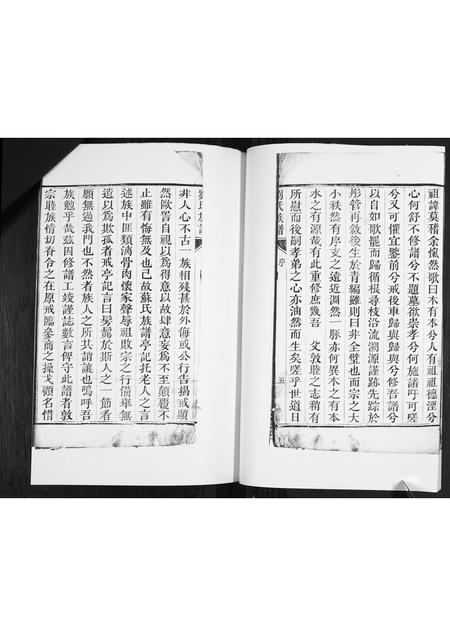 祖諱莫稽余愾然歌曰木有本兮人有祖祖德湮兮
心何舒不修譜兮不題墓欲崇孝兮何施諸吁可嗟
兮又可懼宜鑒前兮戒後車歸與歸與兮修吾譜兮
以自如歌罷而歸循根尋枝沿流溯源謹跡先踪於
彤管再敘後生於青編雖則曰非全璧也而宗之大
小秩然有序支之遠近淵然一脈亦何異木之有本
水之有源哉有此重修庶幾吾 父敦睦之志稍有
所慰而後嗣孝弟之心亦油然而生矣嗟乎世道日
劉氏族譜 序 五
非人心不古一族相殘甚於外侮或公行告揭或顯
然毆詈自視以爲得意以故肆意妄爲不至顛覆不
止雖有悔無及也已故蘇氏族譜亭記托老人之言
述族中匪類漓骨肉懷家聲辱祖敗宗之行備舉無
遺以爲欺孤者戒亭記言曰髣髴於斯人之一節者
願無過我門也不然者族人之所共誚讓也嗚呼吾
族勉乎哉茲因修譜工竣謹誌數言俾守此譜者敦
宗睦族情切脊令之在原戒臨參前之操戈顧名惜